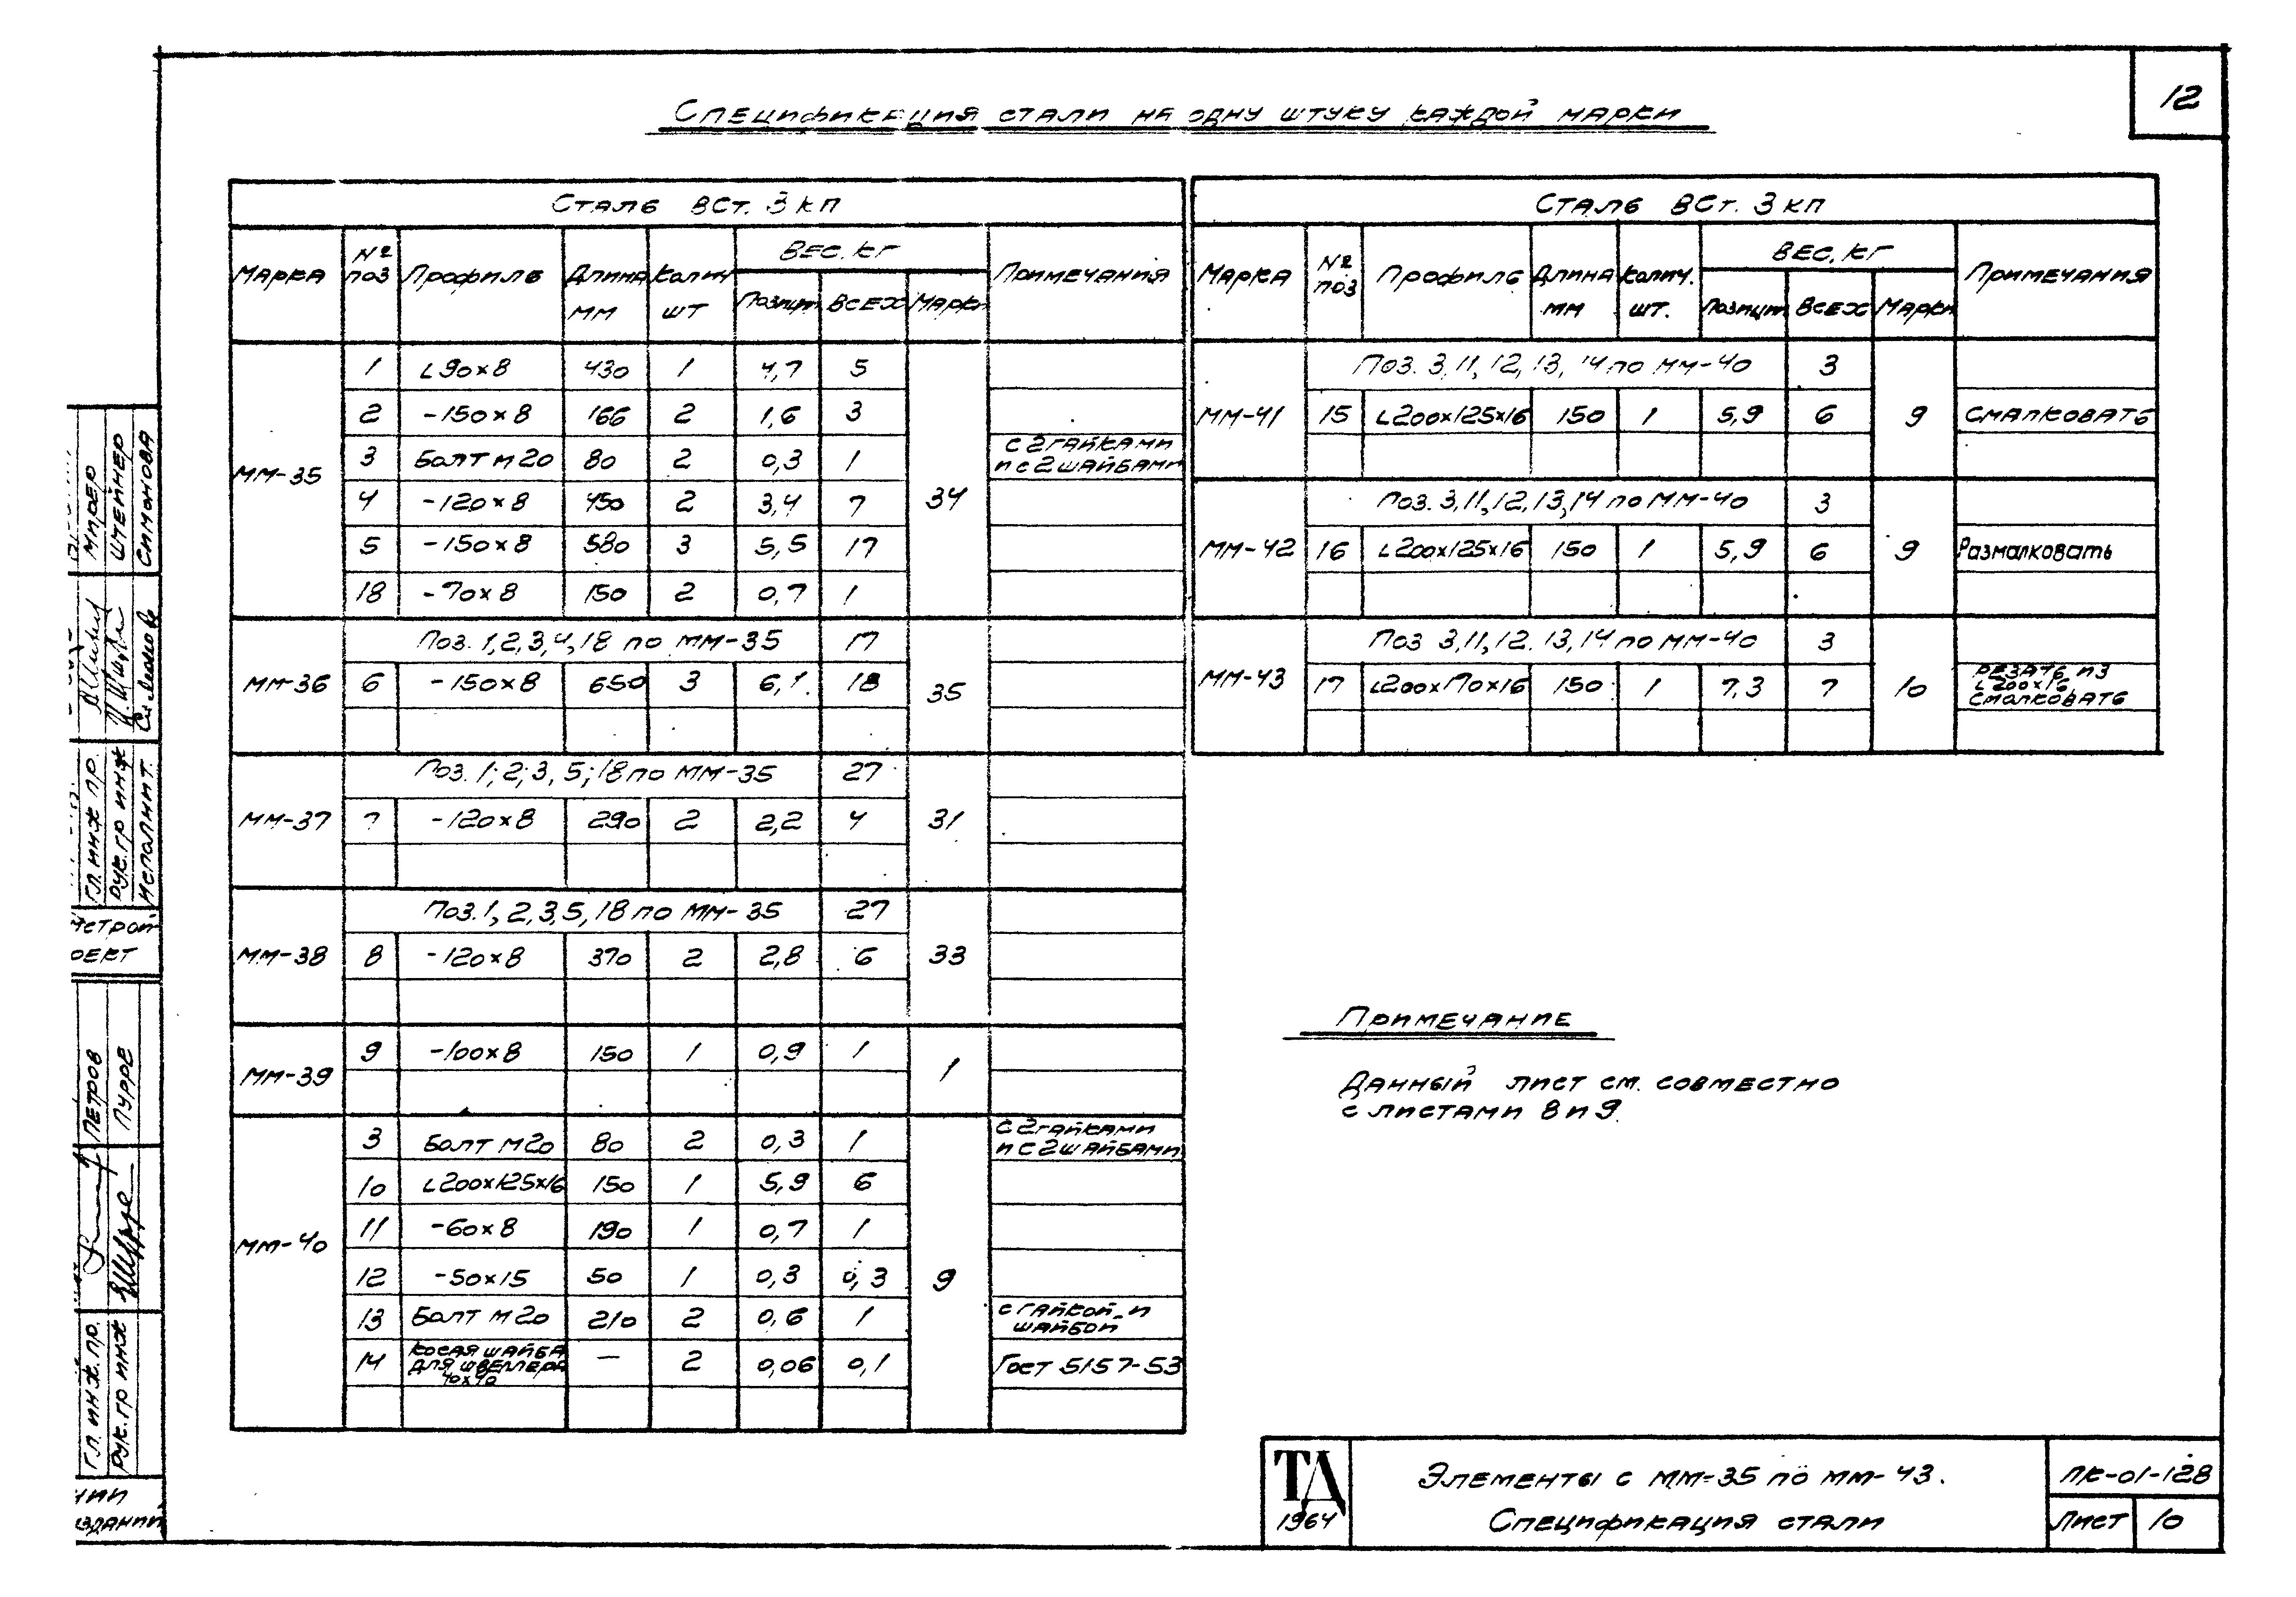 12
Спецификация стали на одну штуку каждой марки
Сталь ВСт. 3кп
Марка № поз Профиль Длина мм Колич шт Вес, кг Примечания
Позици Всех Марки
ММ-35 34
1 L90×8 430 1 4,7 5
2 -150×8 166 2 1,6 3
3 Болт М20 80 2 0,3 1 с 2 гайками и с 2 шайбами
4 -120×8 450 2 3,4 7
5 -150×8 580 3 5,5 17
18 -70×8 150 2 0,7 1
Поз. 1,2,3,4,18 по ММ-35 17
ММ-36 6 -150×8 650 3 6,1 18 35
Поз. 1; 2; 3, 5; 18 по ММ-35 27
ММ-37 7 -120×8 290 2 2,2 4 31
Поз. 1, 2, 3, 5, 18 по ММ-35 27
ММ-38 8 -120×8 370 2 2,8 6 33
ММ-39 9 -100×8 150 1 0,9 1 1
ММ-40 9
3 Болт М20 80 2 0,3 1 с 2 гайками и с 2 шайбами
10 L200×125×16 150 1 5,9 6
11 -60×8 190 1 0,7 1
12 -50×15 50 1 0,3 0,3
13 Болт М20 210 2 0,6 1 с гайкой и шайбой
14 Косая шайба для швеллера 40×40 — 2 0,06 0,1 Гост 5157-53
Сталь ВСт. 3кп
Марка № поз Профиль Длина мм Колич. шт. Вес, кг Примечания
Позици Всех Марки
Поз. 3, 11, 12, 13, 14 по ММ-40 3
ММ-41 15 L200×125×16 150 1 5,9 6 9 Смалковать
Поз. 3, 11, 12, 13, 14 по ММ-40 3
ММ-42 16 L200×125×16 150 1 5,9 6 9 Размалковать
Поз 3, 11, 12. 13, 14 по ММ-40 3
ММ-43 17 L200×170×16 150 1 7,3 7 10 Резать из L200×16 Смалковать
Примечание
Данный лист см. совместно
с листами 8 и 9.
ТД
1964
Элементы с ММ-35 по ММ-43.
Спецификация стали
ПК-01-128
Лист 10
Штейнер
Симонова
Гл. инж пр.
Рук. гр инж
Исполнит.
Петров
Пурре
Гл. инж. пр.
Рук. гр инж